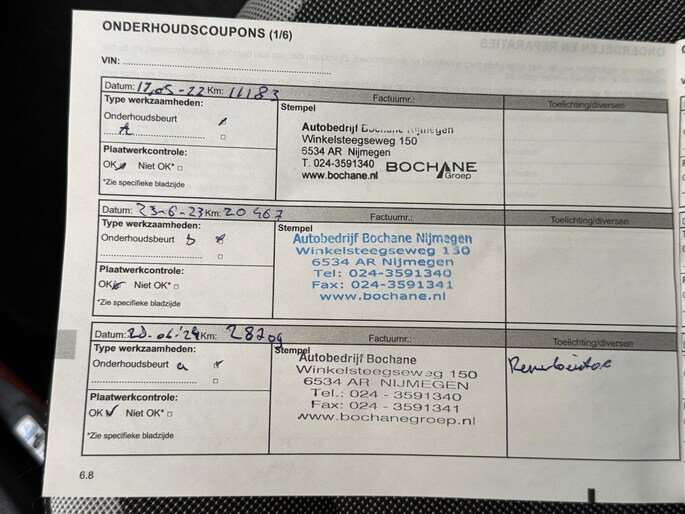 ONDERHOUDSCOUPONS (1/6)
VIN:
Datum: 17-05-22 Km: 11183
Factuurnr.:
Toelichting/diversen
Type werkzaamheden:
Onderhoudsbeurt
A
Plaatwerkcontrole:
OK Niet OK*
*Zie specifieke bladzijde
Stempel
Autobedrijf Bochane Nijmegen
Winkelsteegseweg 150
6534 AR Nijmegen
T. 024-3591340
www.bochane.nl
BOCHANE
Groep
Datum: 23-6-23 Km: 20467
Factuurnr.:
Toelichting/diversen
Type werkzaamheden:
Onderhoudsbeurt b
Plaatwerkcontrole:
OK Niet OK*
*Zie specifieke bladzijde
Stempel
Autobedrijf Bochane Nijmegen
Winkelsteegseweg 150
6534 AR Nijmegen
Tel: 024-3591340
Fax: 024-3591341
www.bochane.nl
Datum: 20-06-'24 Km: 28709
Factuurnr.:
Toelichting/diversen
Type werkzaamheden:
Onderhoudsbeurt a
Plaatwerkcontrole:
OK Niet OK*
*Zie specifieke bladzijde
Stempel
Autobedrijf Bochane
Winkelsteegseweg 150
6534 AR NIJMEGEN
Tel.: 024 - 3591340
Fax: 024 - 3591341
www.bochanegroep.nl
6.8